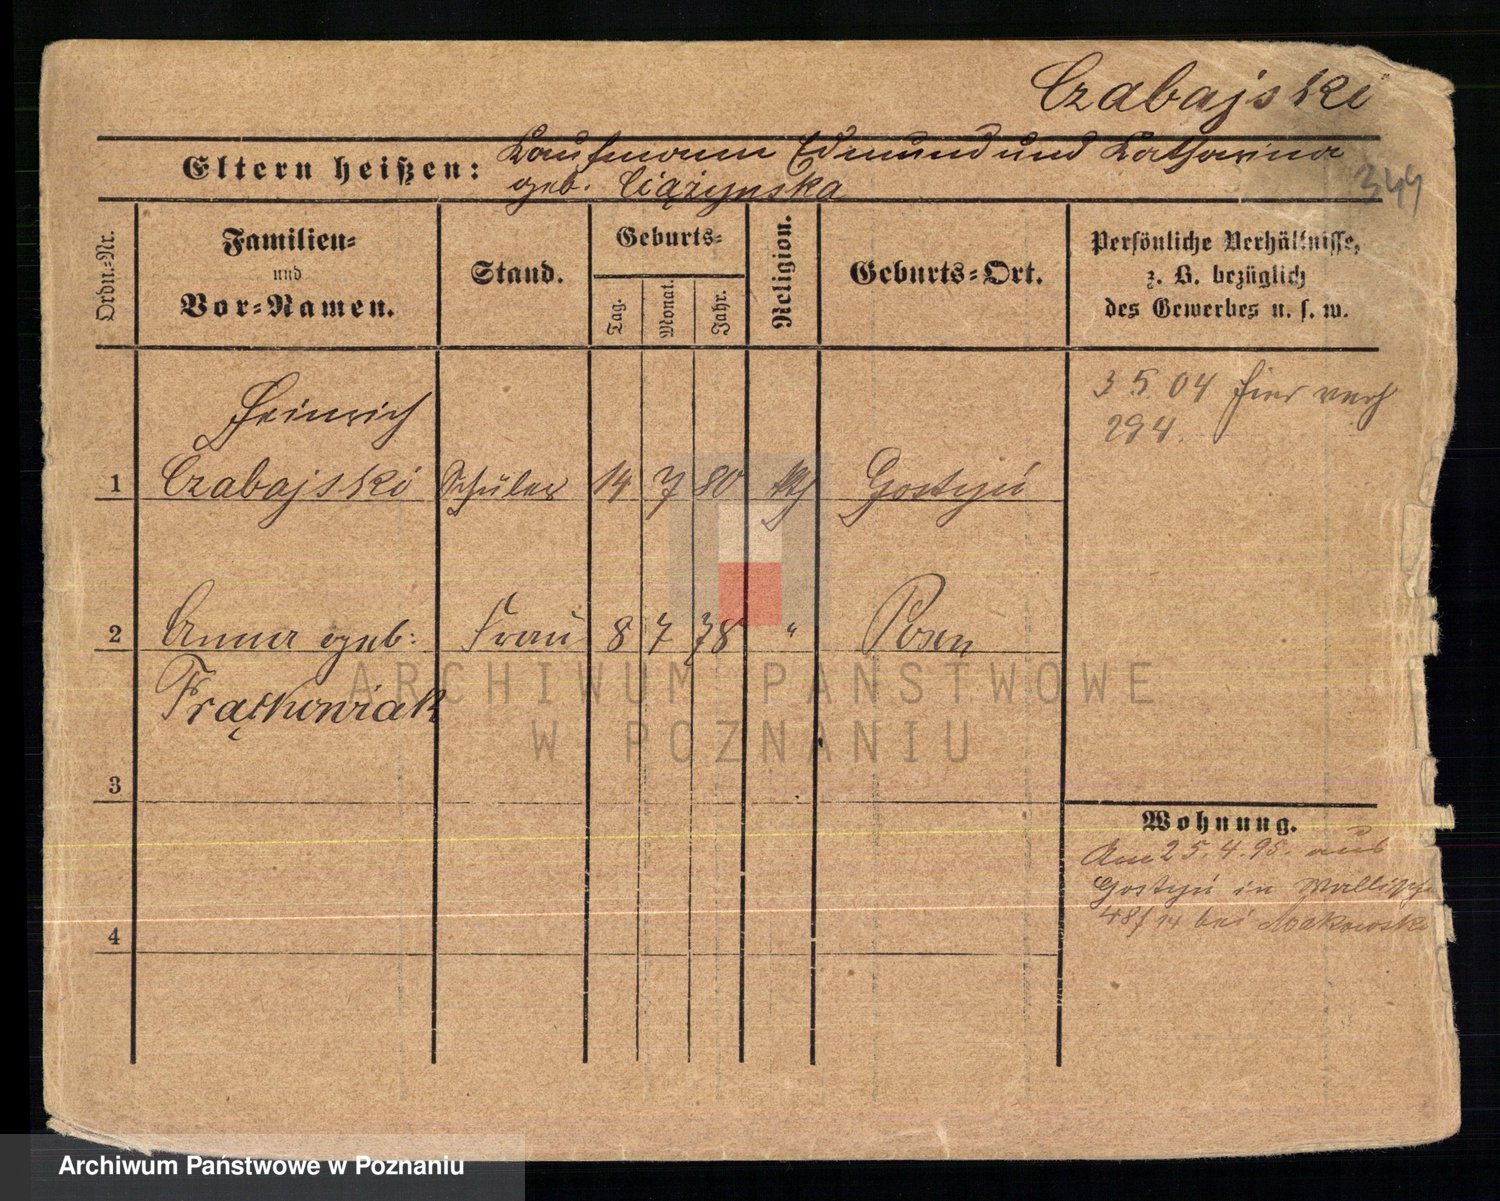 Czabajski
Eltern heißen: Kaufmann Edmund und Katharina
geb. Ciążynska
344
Ordn.-Nr.
Familien-
und
Vor-Namen.
Stand.
Geburts-
Tag.
Monat.
Jahr.
Religion.
Geburts-Ort.
Persönliche Verhältnisse,
z. B. bezüglich
des Gewerbes u. s. w.
3 5. 04 hier verh
294.
Heinrich
1 Czabajski Schüler 14 7 80 kth Gostyń
2 Anna geb: Frau 8 7 78 " Posen
Frąckowiak
3
Wohnung.
Am 25.4.95. aus
Gostyń in Wallische
48/ bei Makowski
4
ARCHIWUM PAŃSTWOWE
W POZNANIU
Archiwum Państwowe w Poznaniu